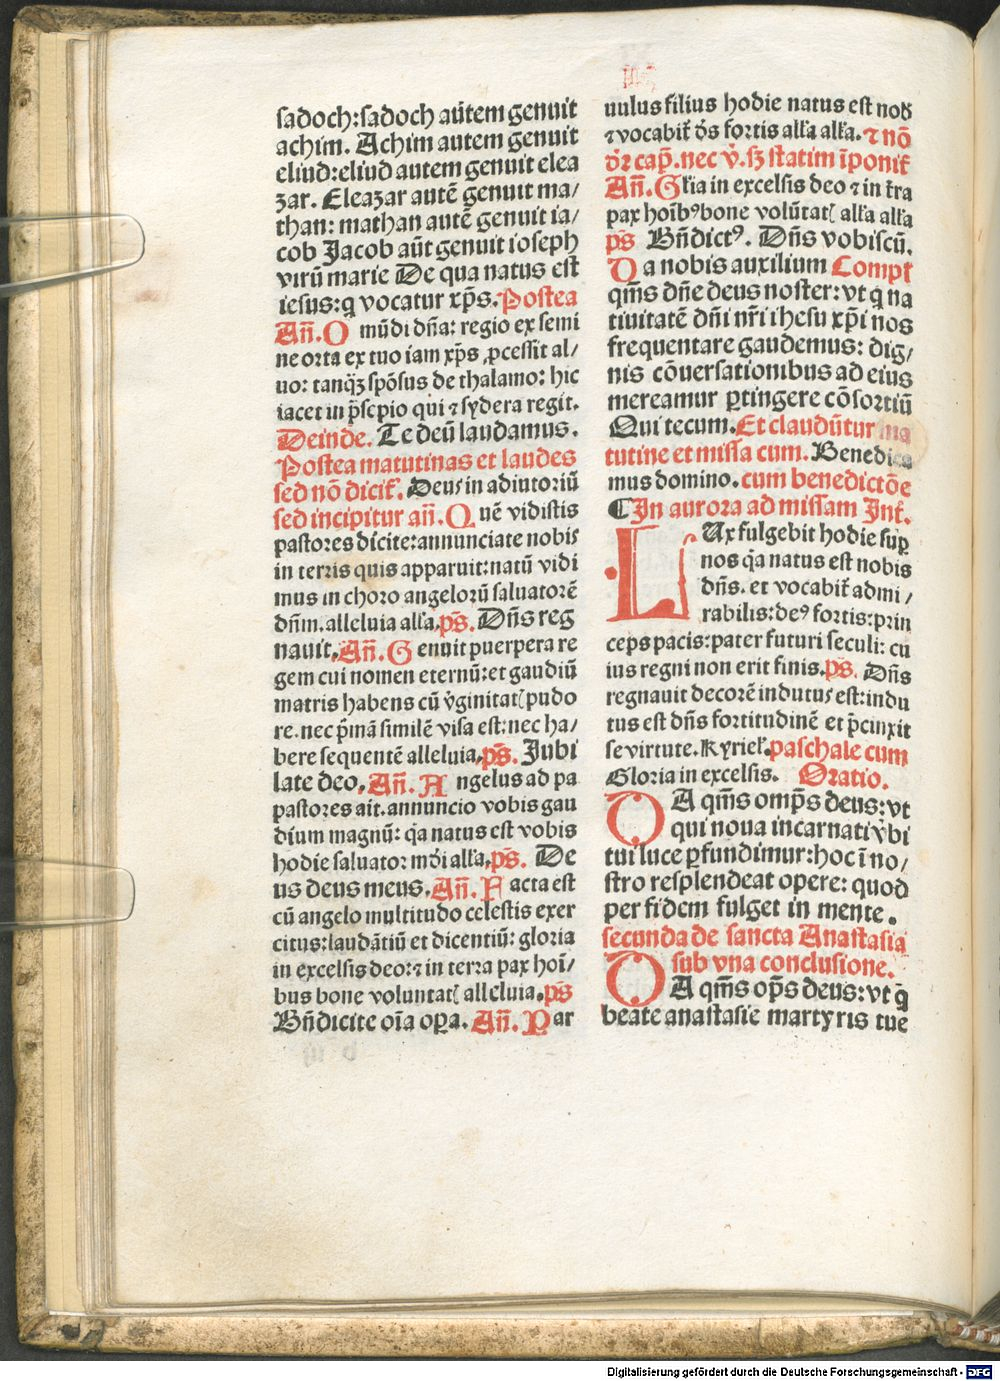 sadoch:sadoch aūtem genuit
achim. Achim autem genuit
eliud:eliud autem genuit elea
zar. Eleazar autē genuit ma/
than: mathan autē genuit ia/
cob Jacob aūt genuit ioseph
virū marie De qua natus est
iesus:q vocatur xp̄s. Postea
Añ. O mūdi dña: regio ex semi
ne orta ex tuo iam xp̄s ꝓcessit al/
uo: tanqȝ spōsus de thalamo: hic
iacet in p̄sepio qui ⁊ sydera regit.
Deinde. Te deū laudamus.
Postea matutinas et laudes
sed nō dicit̄. Deus in adiutoriū
sed incipitur añ. Quē vidistis
pastores dicite:annunciate nobis
in terris quis apparuit:natū vidi
mus in choro angelorū saluatorē
dñm.alleluia all'a.ps̄. Dñs reg
nauit. Añ. Genuit puerpera re
gem cui nomen eternū:et gaudiū
matris habens cū v̇ginitatꝭ pudo
re.nec p̄mā similē visa est:nec ha/
bere sequentē alleluia.ps̄. Jubi
late deo. Añ. Angelus ad pa
pastores ait.annuncio vobis gau
dium magnū: q̇a natus est vobis
hodie saluator mūdi all'a.ps̄. De
us deus meus. Añ. Facta est
cū angelo multitudo celestis exer
citus:laudātiū et dicentiū: gloria
in excelsis deo:⁊ in terra pax hoī/
bus bone voluntatꝭ alleluia.ps̄
Bñdicite oīa oꝑa. Añ. Par
uulus filius hodie natus est nob̄
⁊vocabit̄ d̄s fortis all'a all'a. ⁊ nō
dr̄ cap̄.nec v̇.sȝ statim īponit̄
Añ. Gl'ia in excelsis deo ⁊ in t̄ra
pax hoībꝰ bone volūtatꝭ all'a all'a
ps̄ Bñdictꝰ. Dñs vobiscū.
Da nobis auxilium Compl'
qm̄s dñe deus noster:vt q na
tiuitatē dñi nr̄i ihesu xp̄i nos
frequentare gaudemus: dig/
nis cōuersationibus ad eius
mereamur ꝑtingere cōsortiū
Qui tecum. Et claudūtur ma
tutine et missa cum. Benedica
mus domino. cum benedictōe
¶ In aurora ad missam Int̄.
LUx fulgebit hodie suꝑ
nos q̇a natus est nobis
dñs. et vocabit̄ admi/
rabilis:deꝰ fortis:prin
ceps pacis:pater futuri seculi: cu
ius regni non erit finis.ps̄. Dñs
regnauit decorē indutus est:indu
tus est dñs fortitudinē et p̄cinxit
se virtute. Kyriel'. paschale cum
Gloria in excelsis. Oratio.
DA qm̄s omp̄s deus:vt
qui noua incarnati v̇bi
tui luce ꝑfundimur:hoc ī no/
stro resplendeat opere: quod
per fidem fulget in mente.
secunda de sancta Anastasia
sub vna conclusione.
DA qm̄s op̄s deus:vt q̄
beate anastasie martyris tue
Digitalisierung gefördert durch die Deutsche Forschungsgemeinschaft - DFG